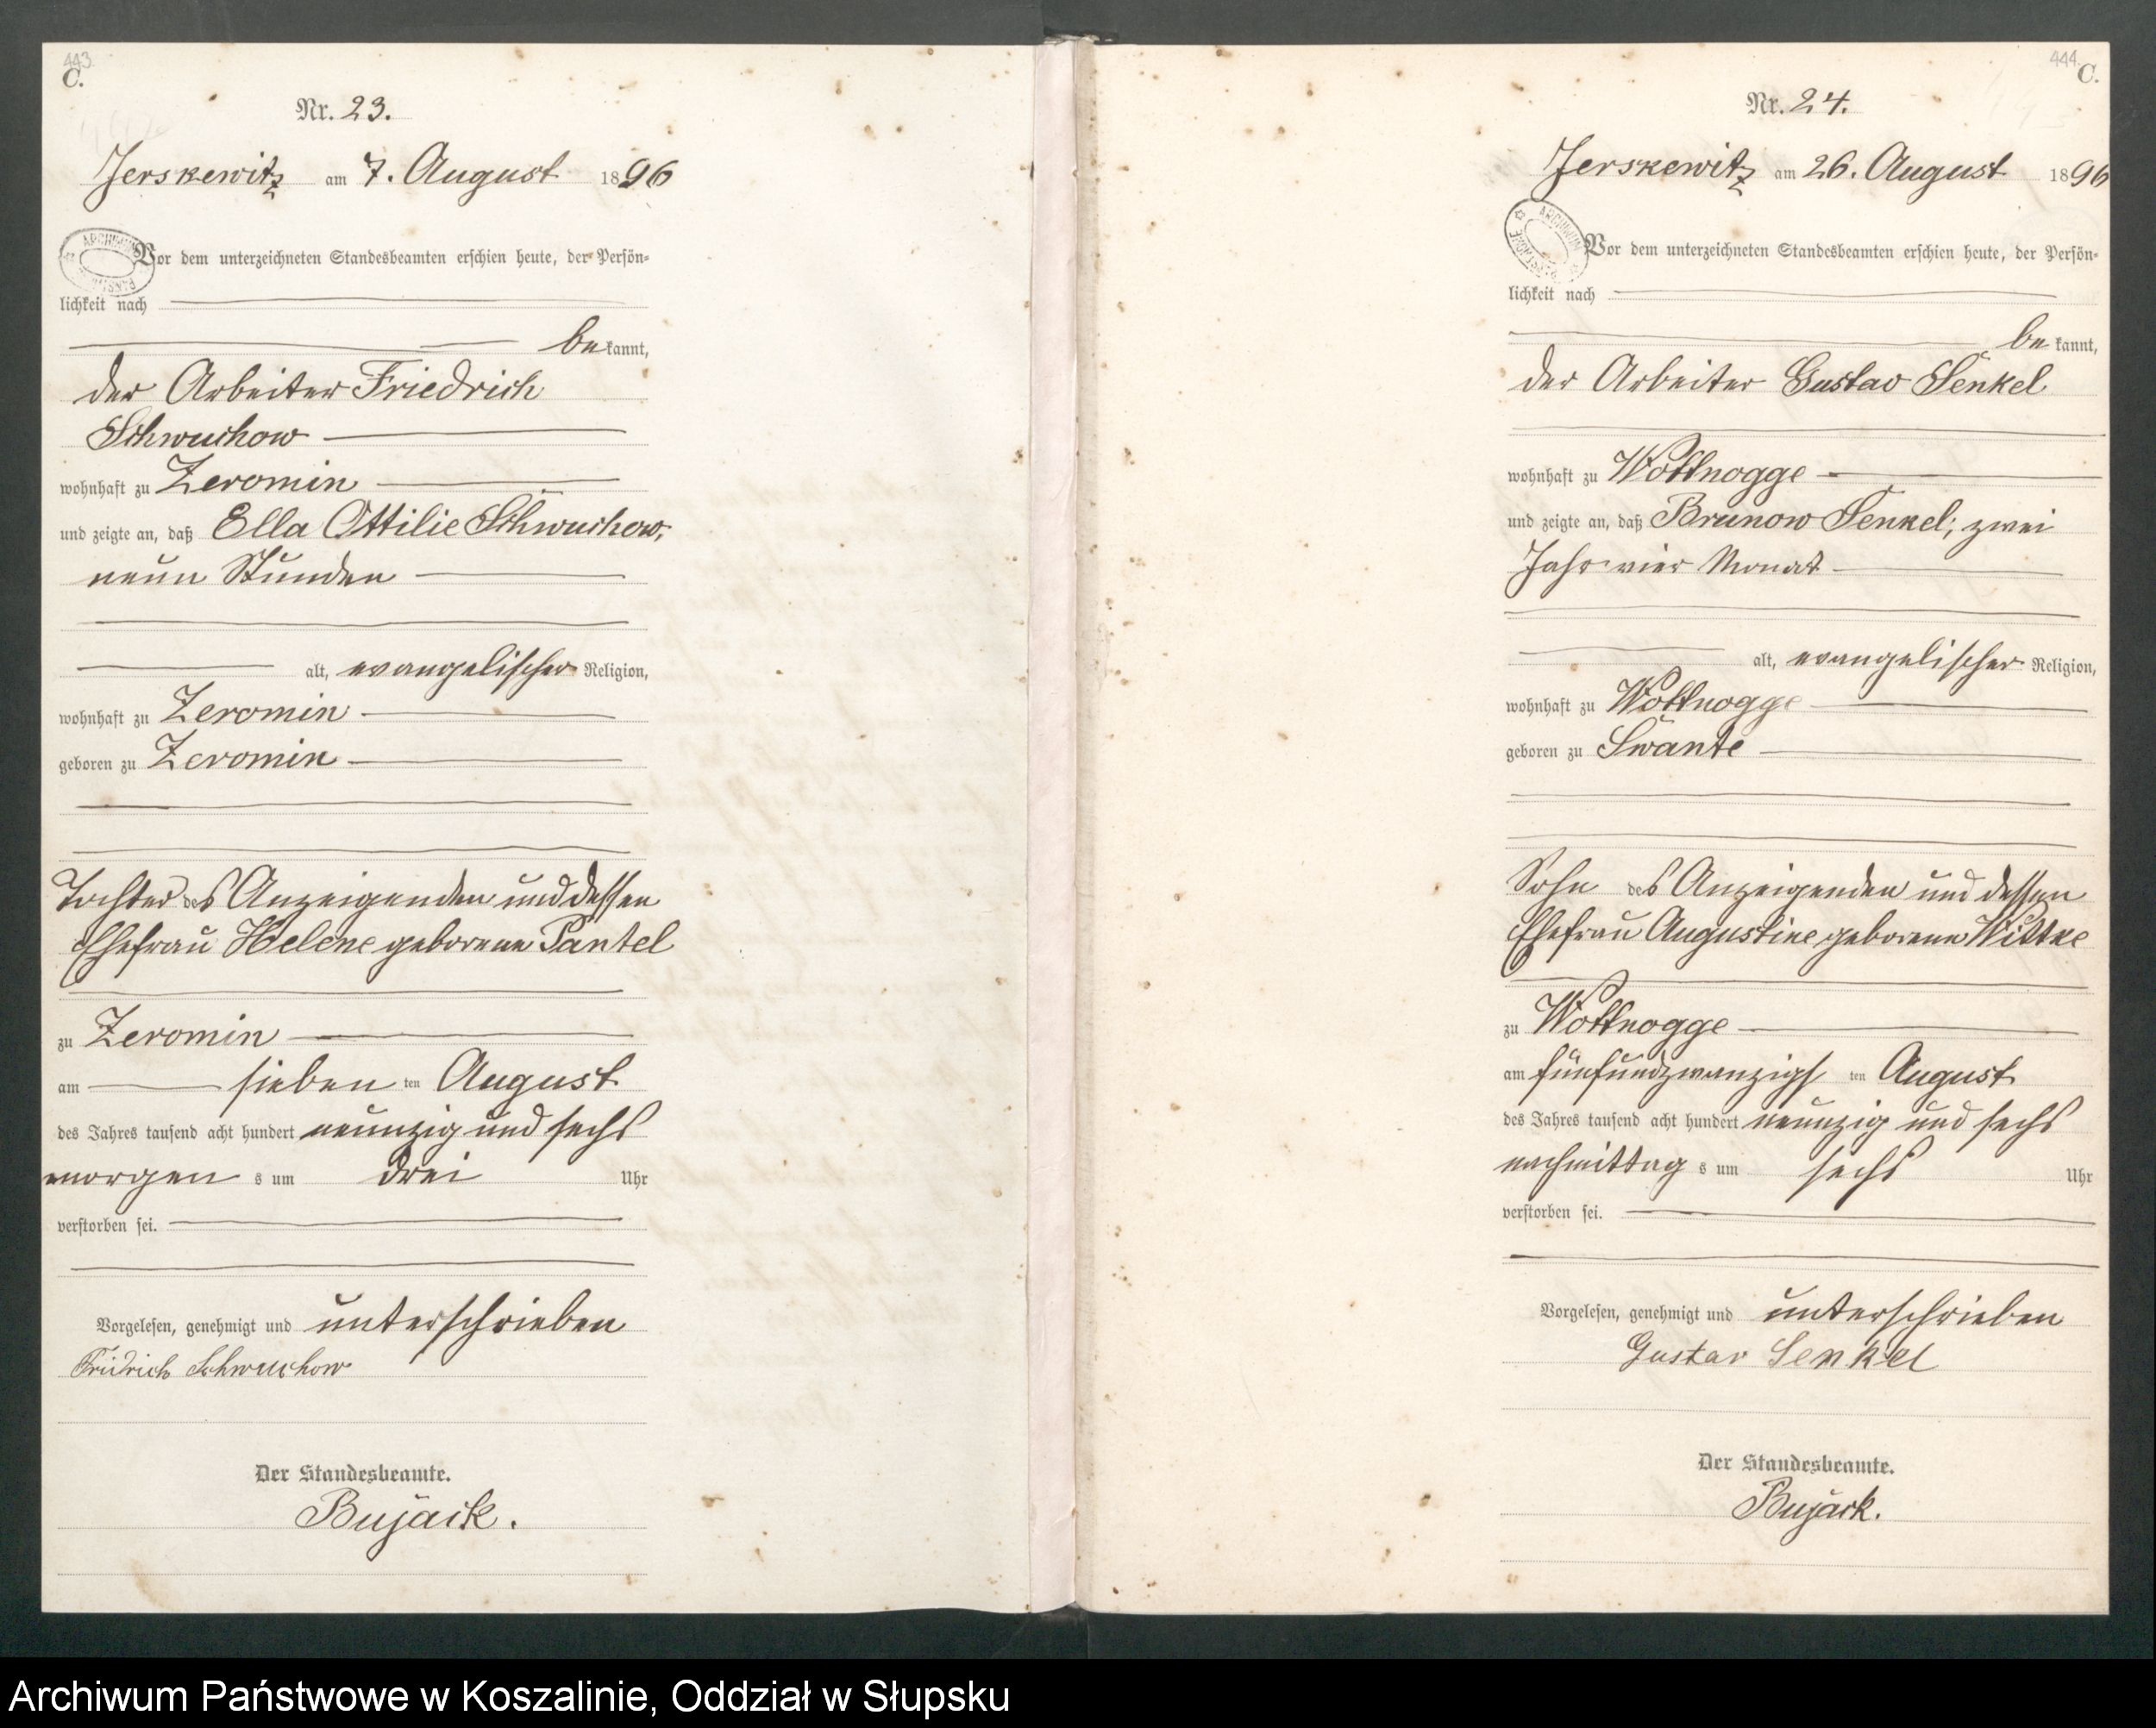 443.
C.
Nr. 23.
Jerskewitz am 7. August 1896
Vor dem unterzeichneten Standesbeamten erschien heute, der Persön=
lichkeit nach
be kannt,
der Arbeiter Friedrich
Schwuchow
wohnhaft zu Zeromin
und zeigte an, daß Ella Ottilie Schwuchow,
neun Stunden
alt, evangelischer Religion,
wohnhaft zu Zeromin
geboren zu Zeromin
Tochter des Anzeigenden und dessen
Ehefrau Helene geborene Pantel
zu Zeromin
am sieben ten August
des Jahres tausend acht hundert neunzig und sechs
morgen s um drei Uhr
verstorben sei.
Vorgelesen, genehmigt und unterschrieben
Fridrich Schwuchow
Der Standesbeamte.
Bujack.
444.
C.
Nr. 24.
Jerskewitz am 26. August 1896
Vor dem unterzeichneten Standesbeamten erschien heute, der Persön=
lichkeit nach
be kannt,
der Arbeiter Gustav Senkel
wohnhaft zu Wottnogge
und zeigte an, daß Brunow Senkel, zwei
Jahr vier Monat
alt, evangelischer Religion,
wohnhaft zu Wottnogge
geboren zu Swante
Sohn des Anzeigenden und dessen
Ehefrau Augustine geborene Wittke
zu Wottnogge
am fünfundzwanzigs ten August
des Jahres tausend acht hundert neunzig und sechs
nachmittag s um sechs Uhr
verstorben sei.
Vorgelesen, genehmigt und unterschrieben
Gustav Senkel
Der Standesbeamte.
Bujack.
Archiwum Państwowe w Koszalinie, Oddział w Słupsku